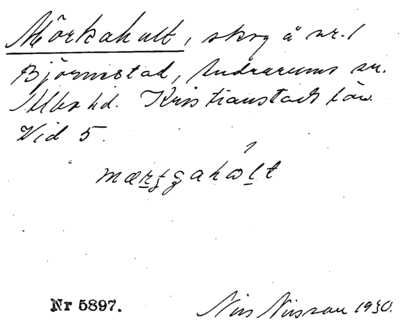 Mörkahult, skog å nr. 1
Björnstad, Andrarums sn.
Albo hd. Kristianstads län
Vid 5.
Nr 5897.
Nils Nilsson 1930.